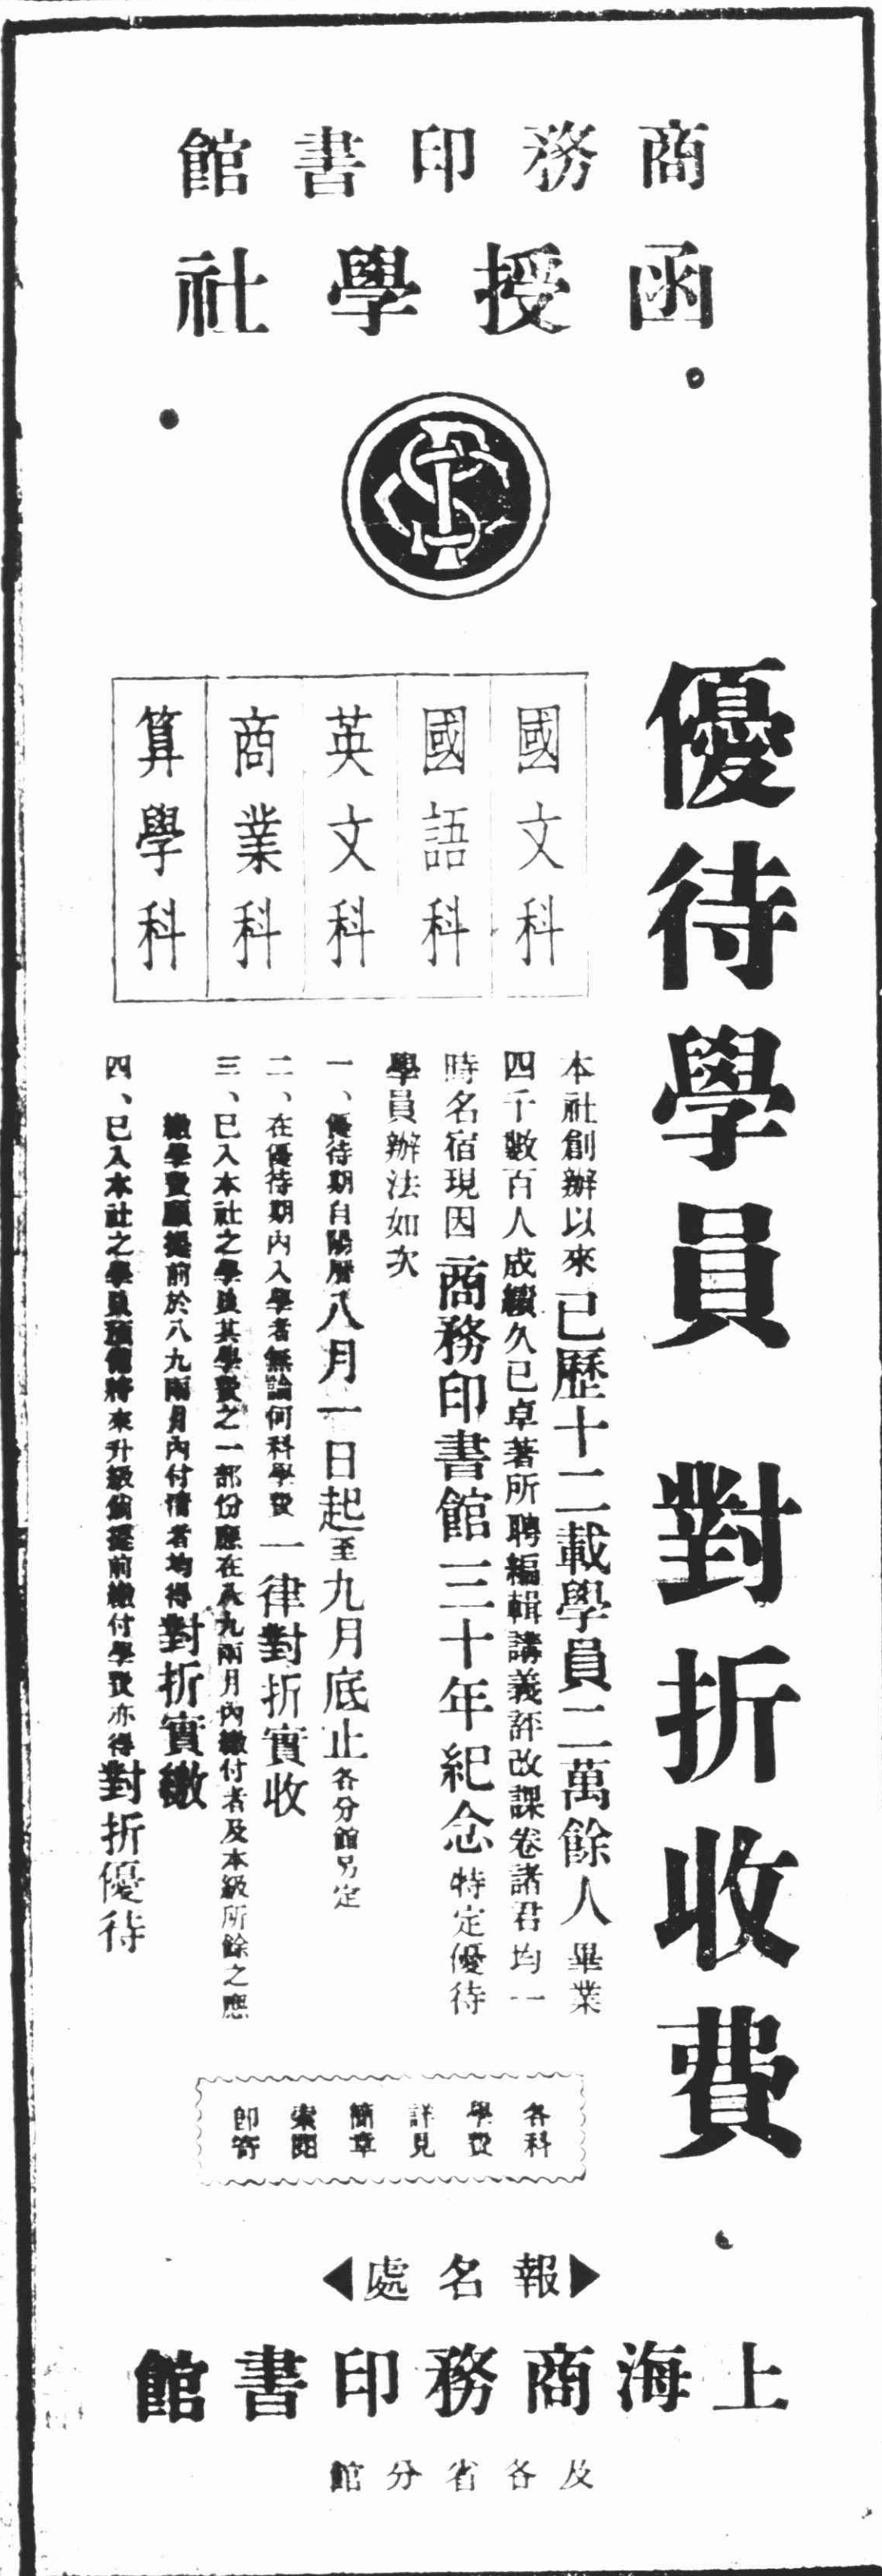 商務印書館
函授學社
優待學員 對折收費
國文科
國語科
英文科
商業科
算學科
本社創辦以來已歷十二載學員二萬餘人畢業
四千數百人成績久已卓著所聘編輯講義評改課卷諸君均一
時名宿現因商務印書館三十年紀念特定優待
學員辦法如次
一、優待期自陽曆八月一日起至九月底止各分館另定
二、在優待期內入學者無論何科學費一律對折實收
三、已入本社之學員其學費之一部份應在八九兩月內繳付者及本級所餘之應
繳學費願提前於八九兩月內付清者均得對折實繳
四、已入本社之學員預備將來升級前提前繳付學費亦得對折優待
各科
學費
詳見
簡章
索閱
即寄
報名處
上海商務印書館
及各省分館